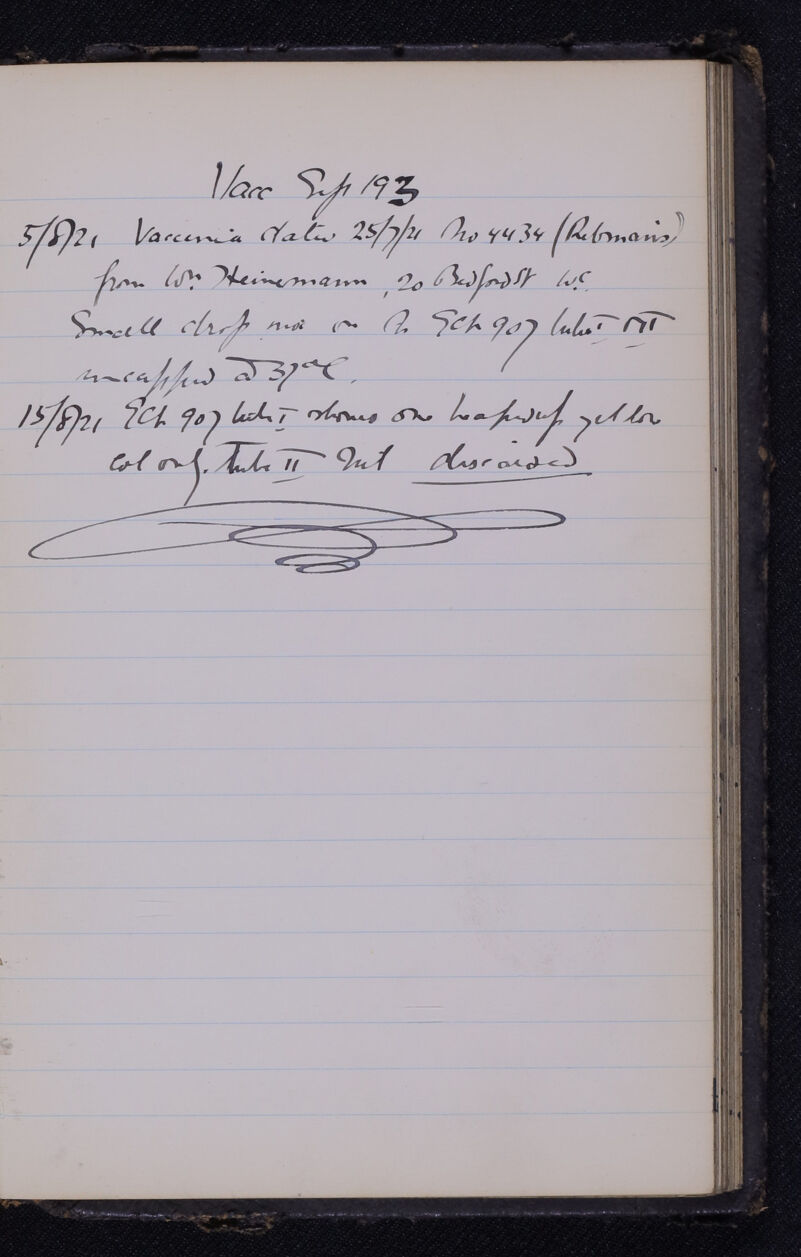 Vacc Exp 193
5/8/21 Vaccinia dated 25/7/21 No 4434 (Rebman's)
from Wm Heinemann, 20 Bedford St W.C.
Small drop on to Ech 907 tubes I II
uncapped at 37°C.
15/8/21 Ech 907 tube I shows one heaped up yellow
col only. Tube II discarded